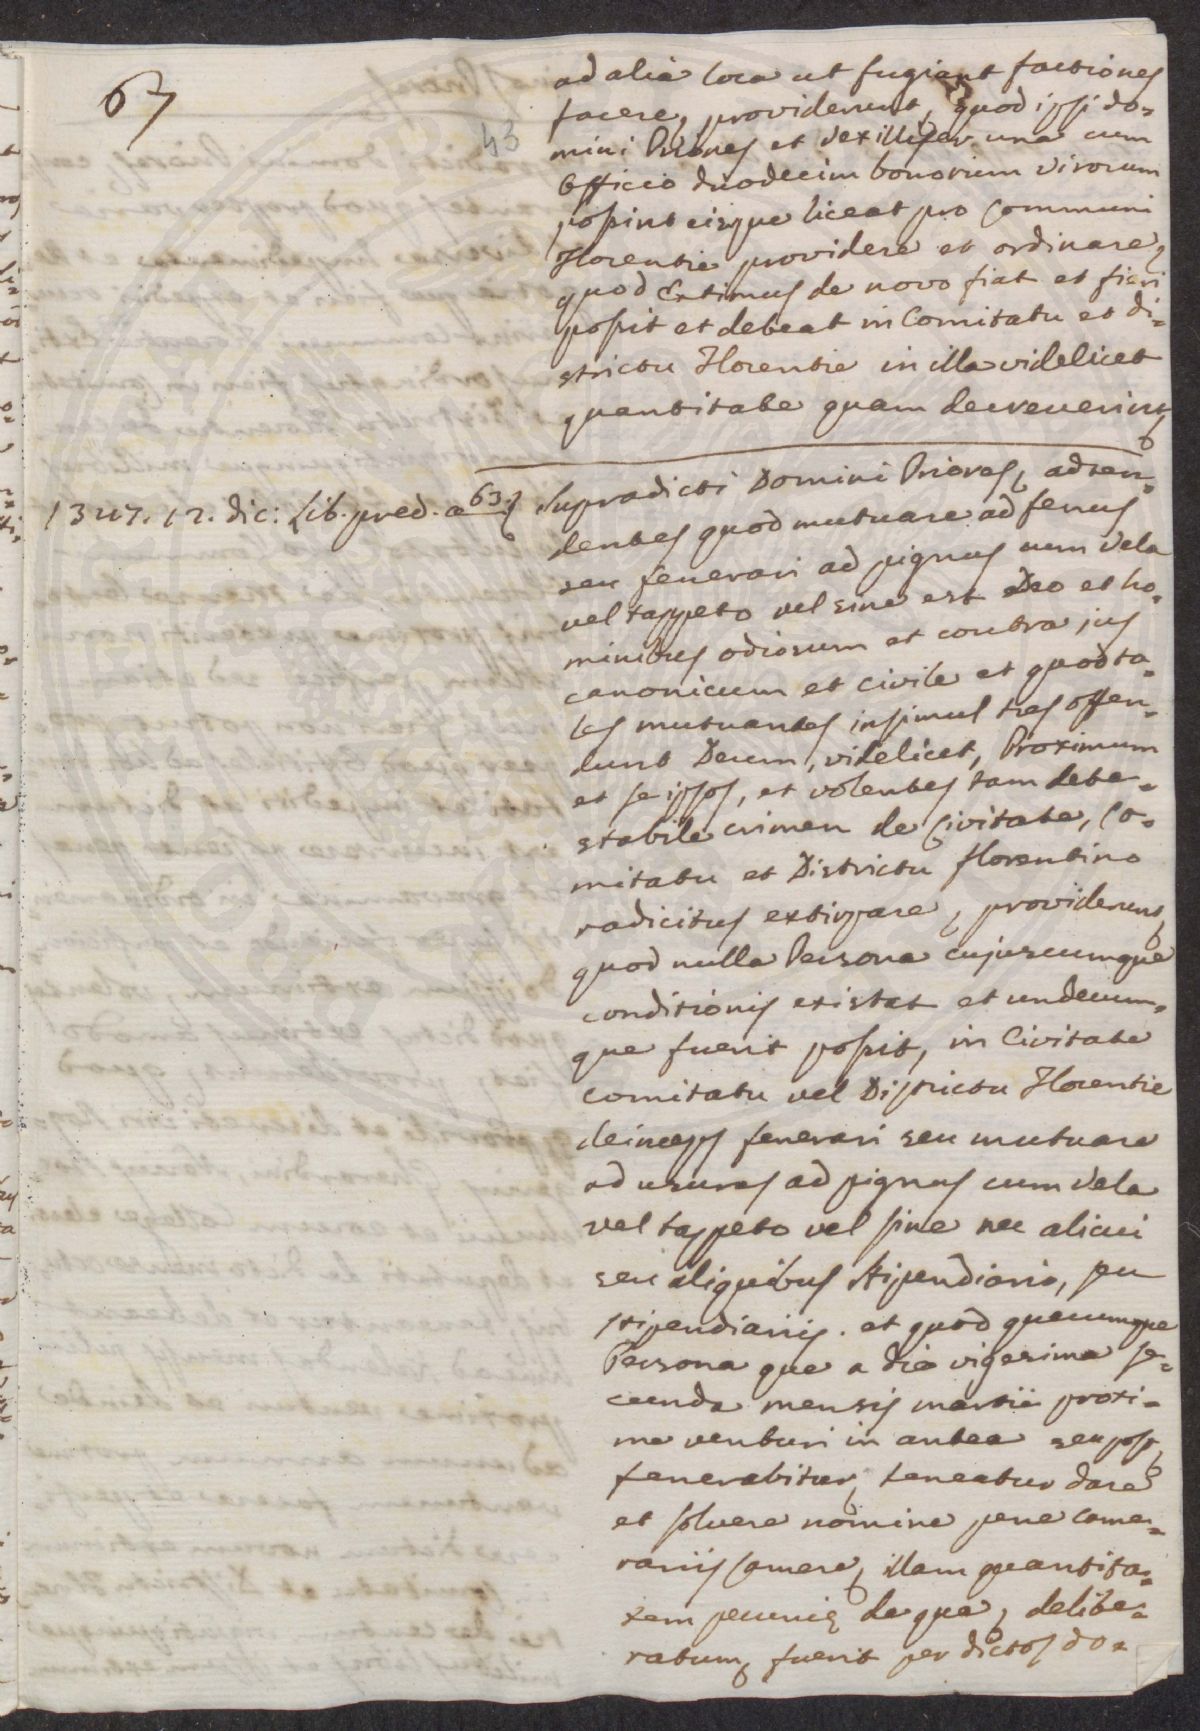 67
43
ad alia loca ut fugiant factiones
facere, providerunt, quod ipsi do=
mini Priores et Vexillifer una cum
Officio duodecim bonorum virorum
possint eisque liceat pro Communi
Florentie providere et ordinare,
quod Extimus de novo fiat et fieri
possit et debeat in Comitatu et di=
strictu Florentie in illa videlicet
quantitate quam decreverint
1347. 12. dic: Lib. pred. a 63.
Supradicti Domini Priores, adten=
dentes quod mutuare ad fenus
seu fenerari ad pignus cum Vela
vel tappeto vel sine est Deo et ho=
minibus odiosum et contra jus
canonicum et civile et quod ta=
les mutuantes insimul tres offen=
dunt Deum, videlicet, Proximum
et se ipsos, et volentes tam dete=
stabile crimen de Civitate, Co=
mitatu et Districtu florentino
radicitus extirpare, providerunt,
quod nulla Persona cujuscumque
conditionis existat et undecum=
que fuerit possit, in Civitate
comitatu vel Districtu Florentie
deinceps fenerari seu mutuare
ad usuras ad pignus cum Vela
vel tappeto vel sine nec alicui
seu aliquibus stipendiario, seu
stipendiariis. et quod quecumque
Persona que a die vigesima se=
cunda mensis martii proxi=
me venturi in antea seu post,
fenerabitur, teneatur dare
et solvere nomine pene Came=
rariis Camere, illam quantita=
tem pecunie de qua, delibe=
ratum, fuerit per dictos do=